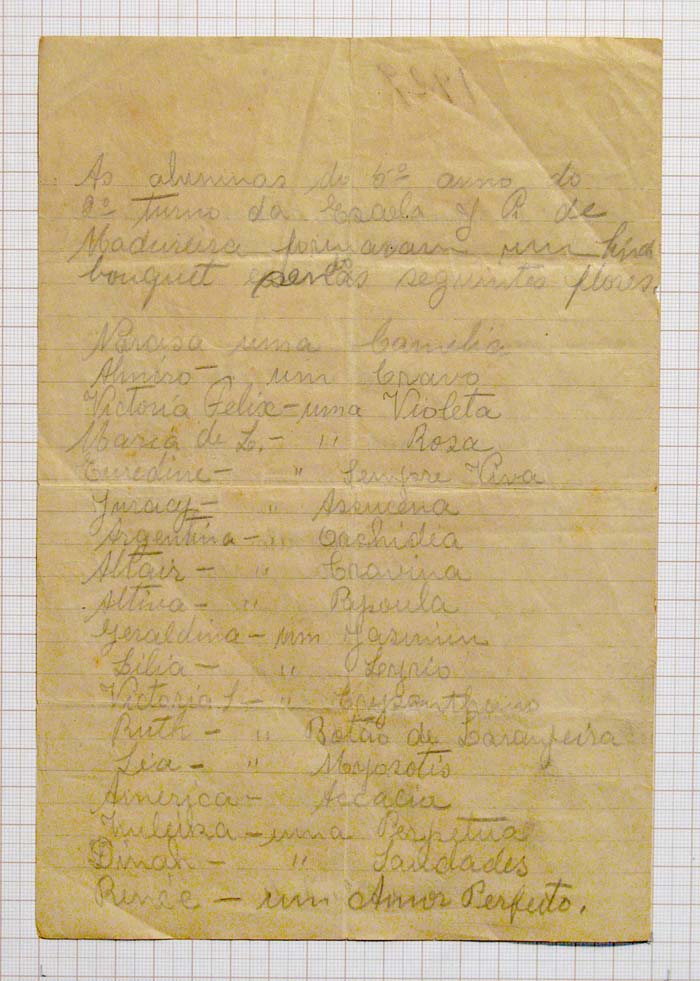 As alumnas do 5º anno do
2º turno da Escola J. P. de
Madureira formavam um lindo
bouquet das seguintes flores.
uma Camelia
Almiro - um Cravo
Victoria Felix - uma Violeta
Maria de L. - " Rosa
Euredine - " Sempre Viva
Juracy - " Assucena
Argentina - " Orchidia
Altair - " Cravina
Altiva - " Papoula
Geraldina - um Jasmim
Lilia - " Leyrio
Victoria S - " Crysanthemo
Ruth - " Botão de Laranjeira
Léa - " Myosotis
America - Accacia
Zuleika - uma Perpetua
Dinah - " Saudades
Renée - um Amor Perfeito.